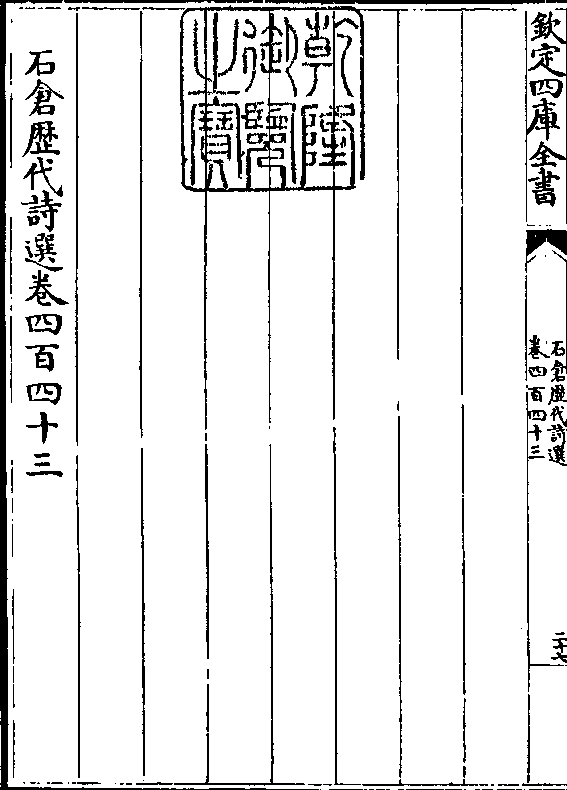 欽定四庫全書
石倉歴代詩選
卷四百四十三
二十七
乾隆
御覽
之寶
石倉歴代詩選卷四百四十三